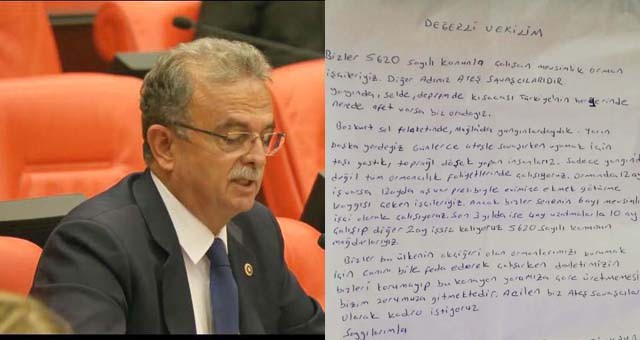 DEĞERLİ VEKİLİM
Bizler 5620 sayılı kanunla çalışan mevsimlik orman
işçileriyiz. Diğer Adımız ATEŞ SAVAŞCILARIDIR.
yangında, selde, depremde kısacası Türkiye'nin her yerinde
nerede afet varsa biz oradayız.
Bozkurt sel felaketinde, Muğlada yangınlardaydık. Yarın
başka yerdeyiz Günlerce ateşle savaşırken uyumak için
taşı yastık, toprağı döşek yapan insanlarız. Sadece yangında
değil tüm ormancılık faliyetlerinde çalışıyoruz. Ormanda 12 ay
iş varsa 12 ayda
evimize ekmek götürme
kaygısı çeken işçileriyiz. Ancak bizler senenin 6 ayı mevsimlik
işci olarak çalışıyoruz. Son 3 yılda ise 4 ay uzatmalarla 10 ay
çalışıp diğer 2 ay işsiz kalıyoruz 5620 sayılı kanunun
mağdurlarıyız.
Bizler bu ülkenin akciğeri olan ormanlarımızı korumak
için canını bile feda ederek çalışırken devletimizin
bizleri korumayıp bu kanayan yaramıza çare üretmemesi
bizim zorumuza gitmektedir. Acilen biz Ateş Savaşcıları
olarak kadro istiyoruz
Saygılarımla